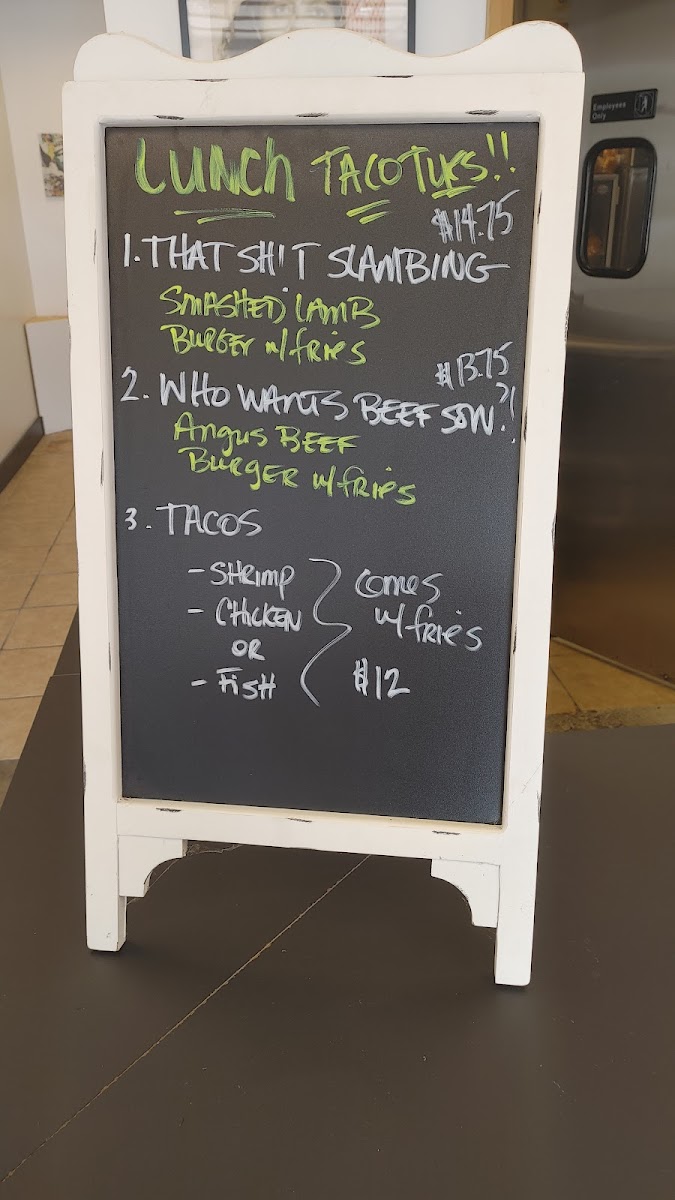 Employees
Only
LUNCH TACO TUES!!
$14.75
1. THAT SH!T SLAMBING
SMASHED LAMB
BURGER w/ fries
$13.75
2. WHO WANTS BEEF SON?!
Angus BEEF
BURGER w/ fries
3. TACOS
- SHRIMP
- CHICKEN
OR
- FISH
comes
w/ fries
$12